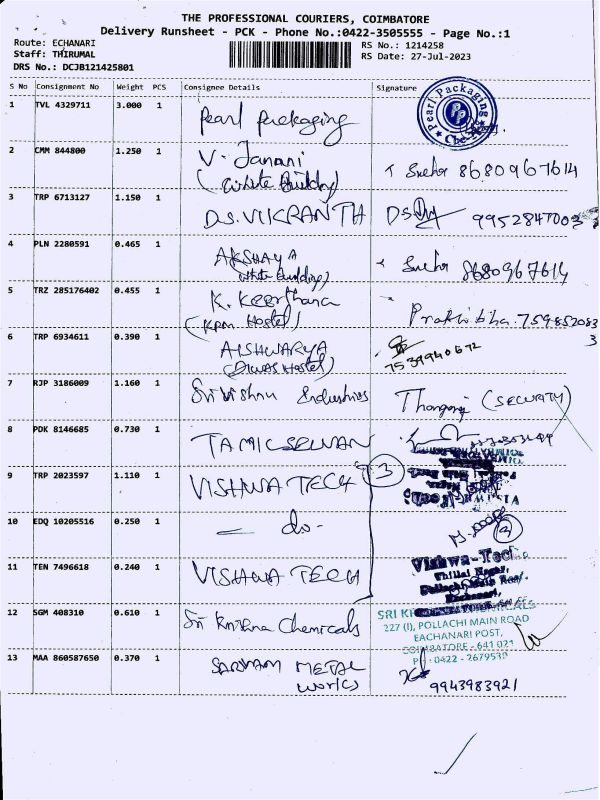 THE PROFESSIONAL COURIERS, COIMBATORE
Delivery Runsheet - PCK - Phone No.:0422-3505555 - Page No.:1
Route: ECHANARI
RS No.: 1214258
Staff: THIRUMAL
RS Date: 27-Jul-2023
DRS No.: DCJB121425801
S No Consignment No Weight PCS Consignee Details Signature
1 TVL 4329711 3.000 1 Pearl Packaging
Pearl Packaging
PP
2 CMM 844800 1.250 1 V. Janani Sneha 8680967614
(White Building)
3 TRP 6713127 1.150 1 D.S. VIKRANTH 9952847003
4 PLN 2280591 0.465 1 AKSHAYA Sneha 8680967614
(White Building)
5 TRZ 285176402 0.455 1 K. Keerthana
(KPM Hostel)
6 TRP 6934611 0.390 1 AISHWARYA 7539940672
7 RJP 3186009 1.160 1 Sri Vishnu Industries (SECURITY)
8 PDK 8146685 0.730 1 TAMILSELVAN
9 TRP 2023597 1.110 1 VISHWA TECH 3
10 EDQ 10205516 0.250 1 — do - 3
11 TEN 7496618 0.240 1 VISHWA TECH
Vishwa-Tech
12 SGM 408310 0.610 1 Sri Krishna Chemicals
227 (I), POLLACHI MAIN ROAD
EACHANARI POST,
COIMBATORE - 641 021
13 MAA 860587650 0.370 1 SARVAM METAL
works
9943983921